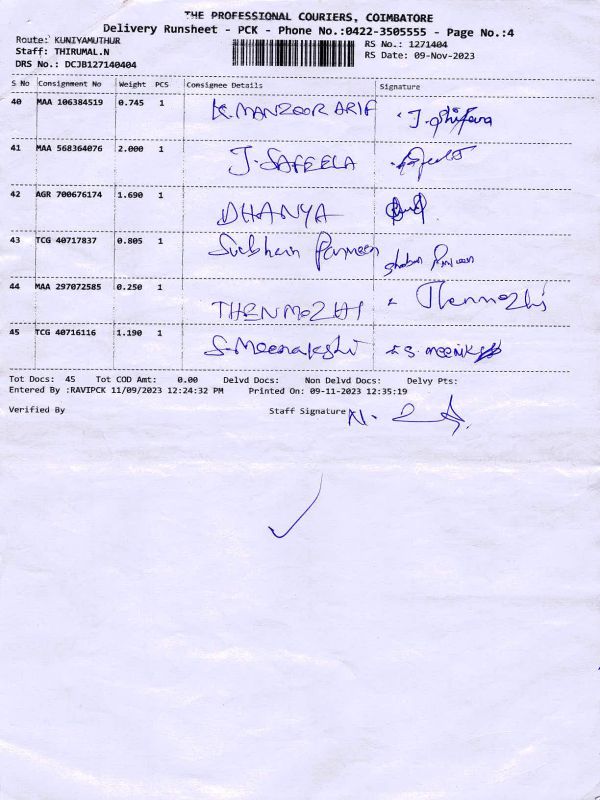 THE PROFESSIONAL COURIERS, COIMBATORE
Delivery Runsheet - PCK - Phone No.:0422-3505555 - Page No.:4
Route: KUNIYAMUTHUR
RS No.: 1271404
Staff: THIRUMAL.N
RS Date: 09-Nov-2023
DRS No.: DCJB127140404
S No Consignment No Weight PCS Consignee Details Signature
40 MAA 106384519 0.745 1 K.MANZOOR ARIF
41 MAA 568364076 2.000 1 J.SAFEELA
42 AGR 700676174 1.690 1 DHANYA
43 TCG 40717837 0.805 1 Parveen
44 MAA 297072585 0.250 1 THENMOZHI Thenmozhi
45 TCG 40716116 1.190 1 S.Meenakshi
Tot Docs: 45 Tot COD Amt: 0.00 Delvd Docs: Non Delvd Docs: Delvy Pts:
Entered By :RAVIPCK 11/09/2023 12:24:32 PM Printed On: 09-11-2023 12:35:19
Verified By Staff Signature